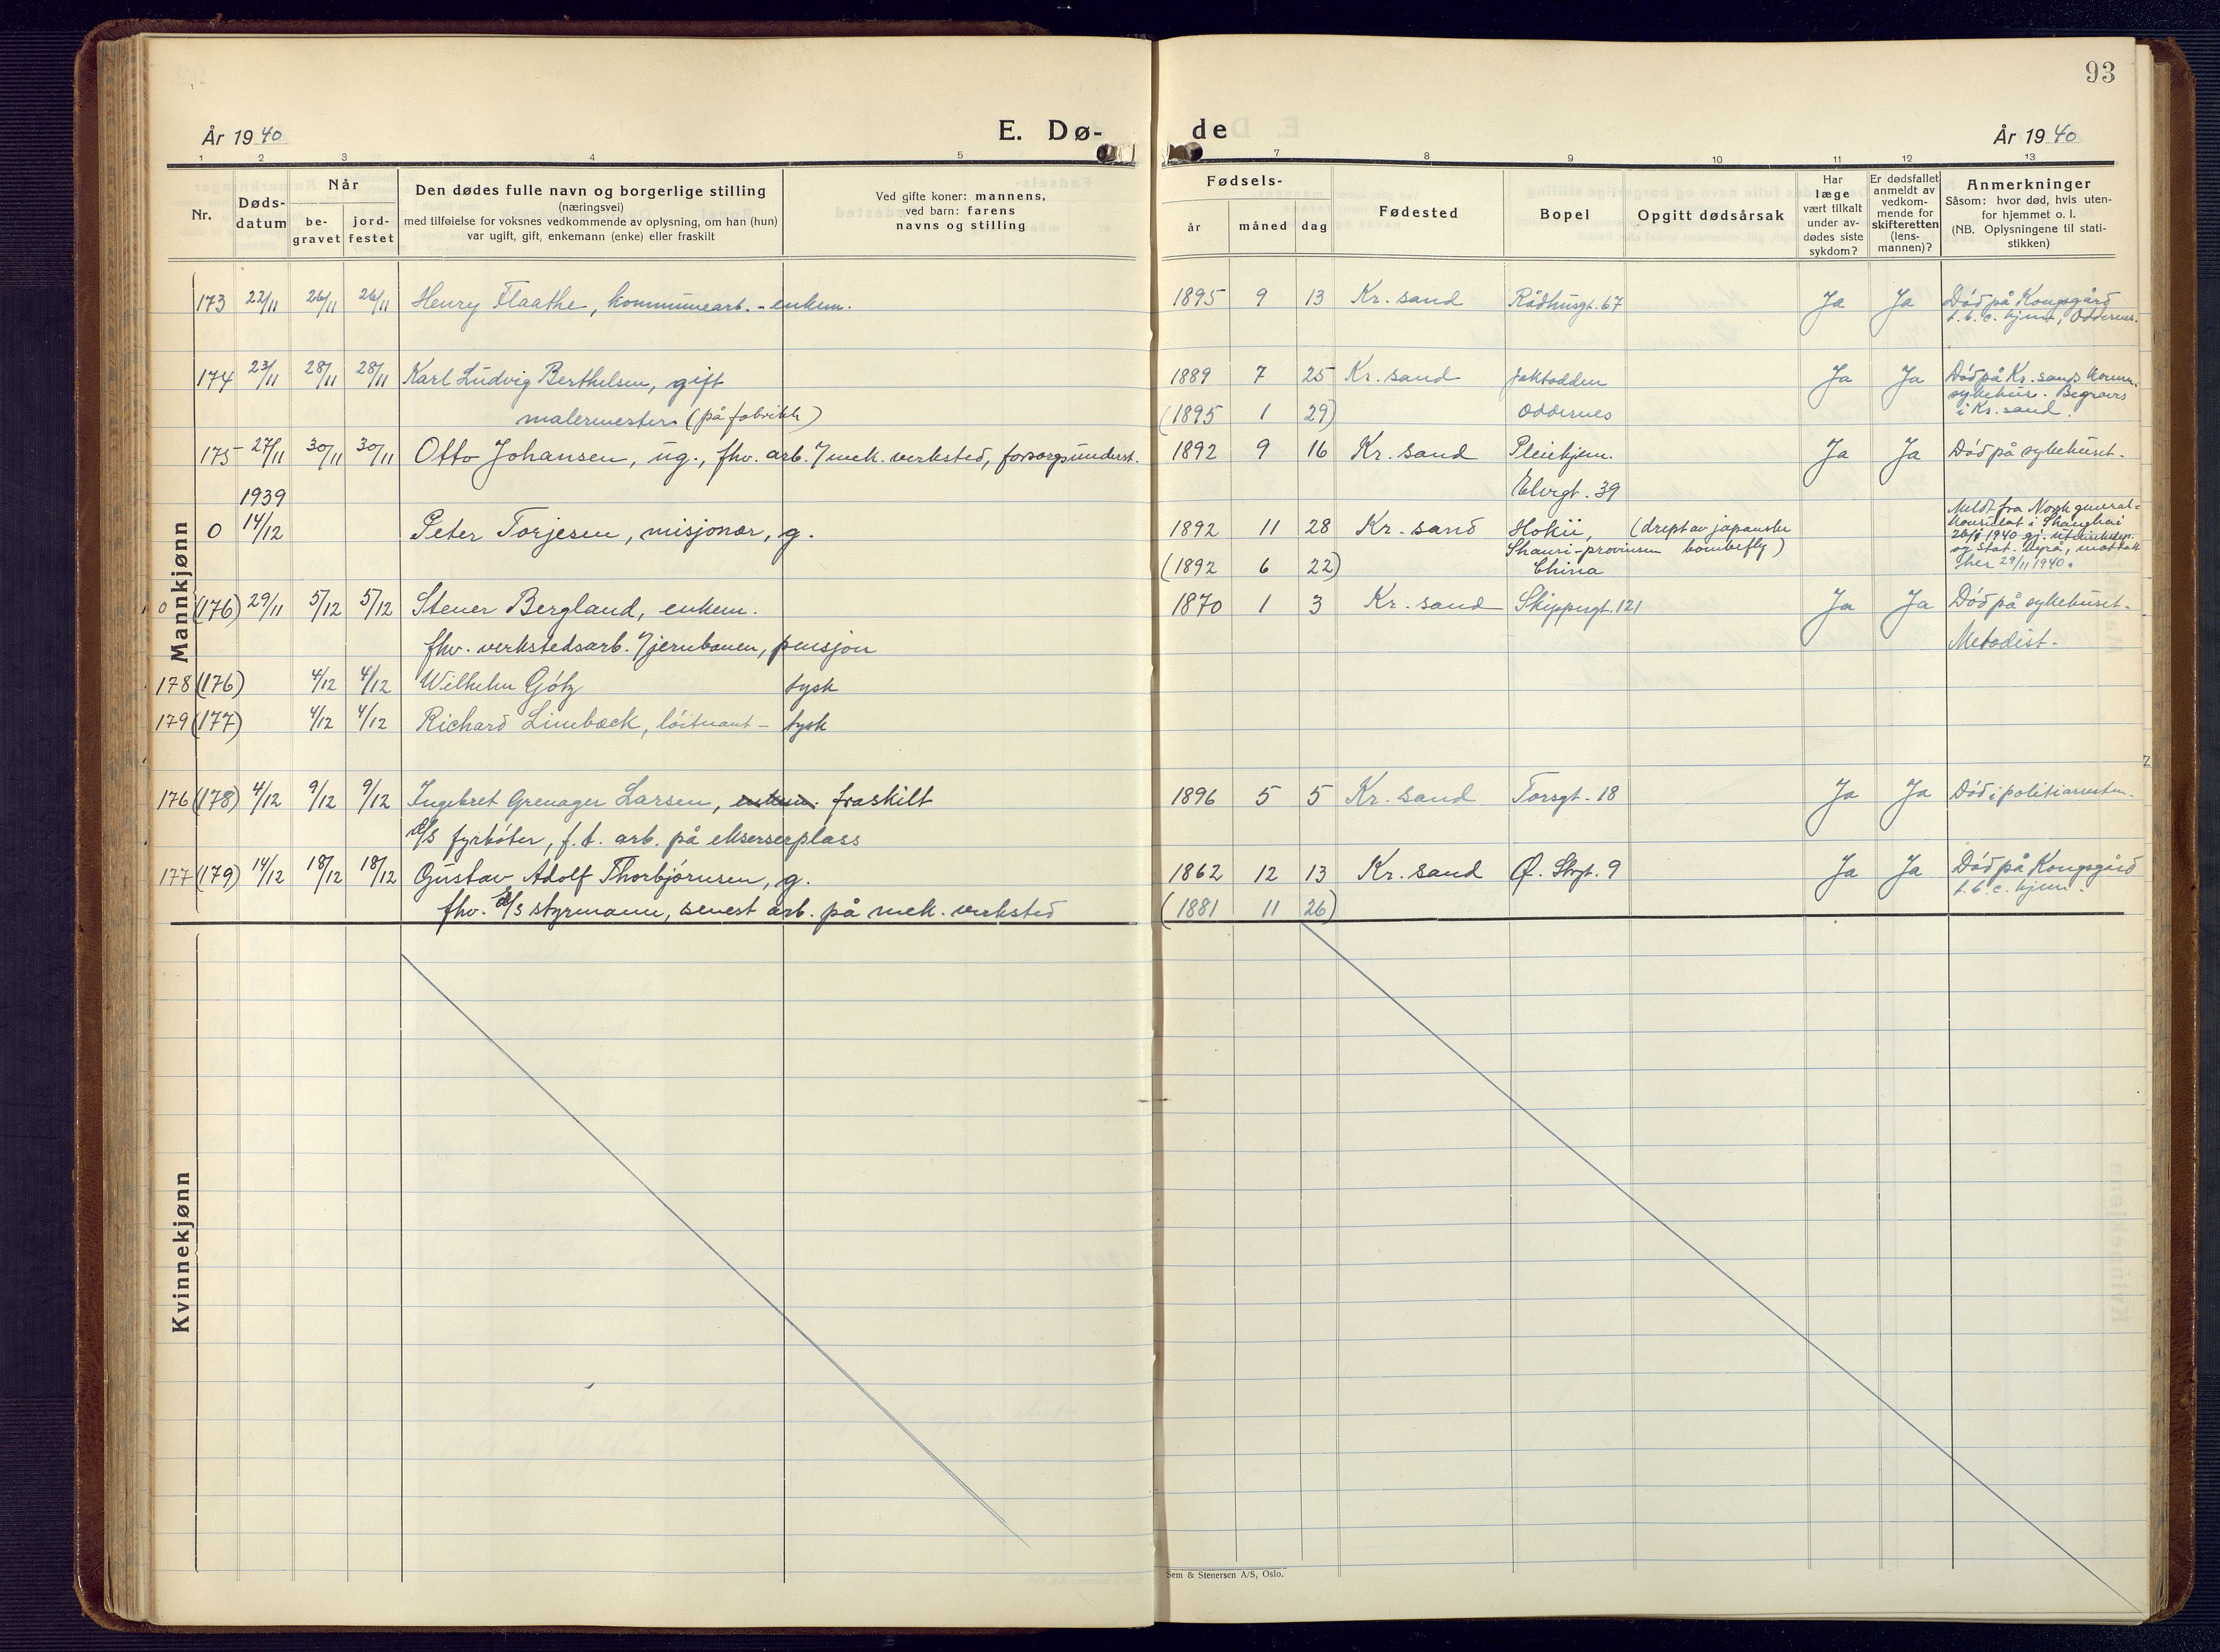 93
År 1940
E. Dø-
de
År 1940
1 2 3 4 5 7 8 9 10 11 12 13
Nr.
Døds-
datum
Når
be-
gravet
jord-
festet
Den dødes fulle navn og borgerlige stilling
(næringsvei)
med tilføielse for voksnes vedkommende av oplysning, om han (hun)
var ugift, gift, enkemann (enke) eller fraskilt
Ved gifte koner: mannens,
ved barn: farens
navns og stilling
Fødsels-
år måned dag
Fødested
Bopel
Opgitt dødsårsak
Har
læge
vært tilkalt
under av-
dødes siste
sykdom?
Er dødsfallet
anmeldt av
vedkom-
mende for
skifteretten
(lens-
mannen)?
Anmerkninger
Såsom: hvor død, hvis uten-
for hjemmet o. l.
(NB. Oplysningene til stati-
stikken)
Mannkjønn
173 22/11 26/11 26/11 Henry Flaathe, kommunearb. - enkem. 1895 9 13 Kr. sand Rådhusgt. 67 Ja Ja Død på Kongsgård
t. b. c. hjem, Oddernes.
174 23/11 28/11 28/11 Karl Ludvig Berthelsen, gift 1889 7 25 Kr. sand Jaktodden Ja Ja Død på Kr. sands komm.
sykehus. Begraves
malermester (på fabrikk) (1895 1 29) Oddernes i Kr. sand.
175 27/11 30/11 30/11 Otto Johansen, ug., fhv. arb. v/ mek. verksted, forsorgsunderst. 1892 9 16 Kr. sand Pleiehjem. Ja Ja Død på sykehuset.
Elvegt. 39
1939
0 14/12 Peter Torjesen, misjonær, g. 1892 11 28 Kr. sand Hokü, (drept av japanske
Shansi-provinsen bombefly)
(1892 6 22) China
Meldt fra Norsk general-
konsulat i Shanghai
1940 gj.
og Stat. byrå, mottatt
her 29/11 1940.
0 (176) 29/11 5/12 5/12 Stener Bergland, enkem. 1870 1 3 Kr. sand Skippergt. 121 Ja Ja Død på sykehuset.
fhv. verkstedsarb. v/ jernbanen, pensjon Metodist.
178 (176) 4/12 4/12 Wilhelm Götz tysk
179 (177) 4/12 4/12 Richard Limbæck, løitnant - tysk
176 (178) 4/12 9/12 9/12 Ingebret Grenager Larsen, enkem. fraskilt 1896 5 5 Kr. sand Torsgt. 18 Ja Ja Død i politiarresten.
d/s fyrbøter, f. t. arb. på ekserserplass
177 (179) 14/12 18/12 18/12 Gustav Adolf Thorbjørnsen, g. 1862 12 13 Kr. sand Ø. Strgt. 9 Ja Ja Død på Kongsgård
t. b. c. hjem.
fhv. d/s styrmann, senest arb. på mek. verksted (1881 11 26)
Kvinnekjønn
Sem & Stenersen A/S, Oslo.